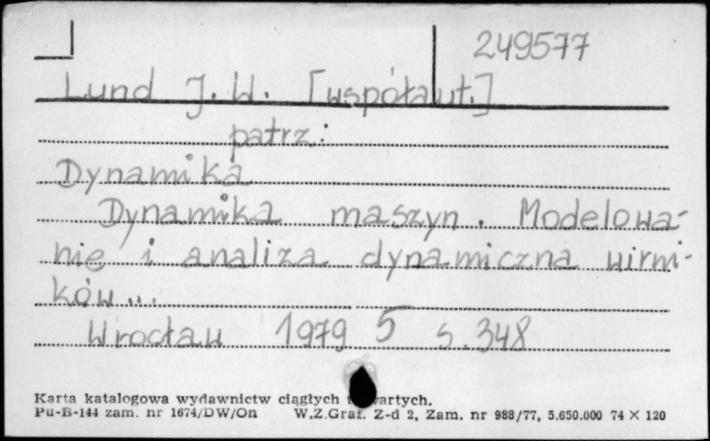 249577
Lund J. W. [współaut.]
patrz:
Dynamika
Dynamika maszyn. Modelowa-
nie i analiza dynamiczna wirni-
ków...
Wrocław 1979 5 s. 348
Karta katalogowa wydawnictw ciągłych wartych.
Pu-B-144 zam. nr 1674/DW/On W.Z.Graf. Z-d 2, Zam. nr 988/77, 5.650.000 74 × 120